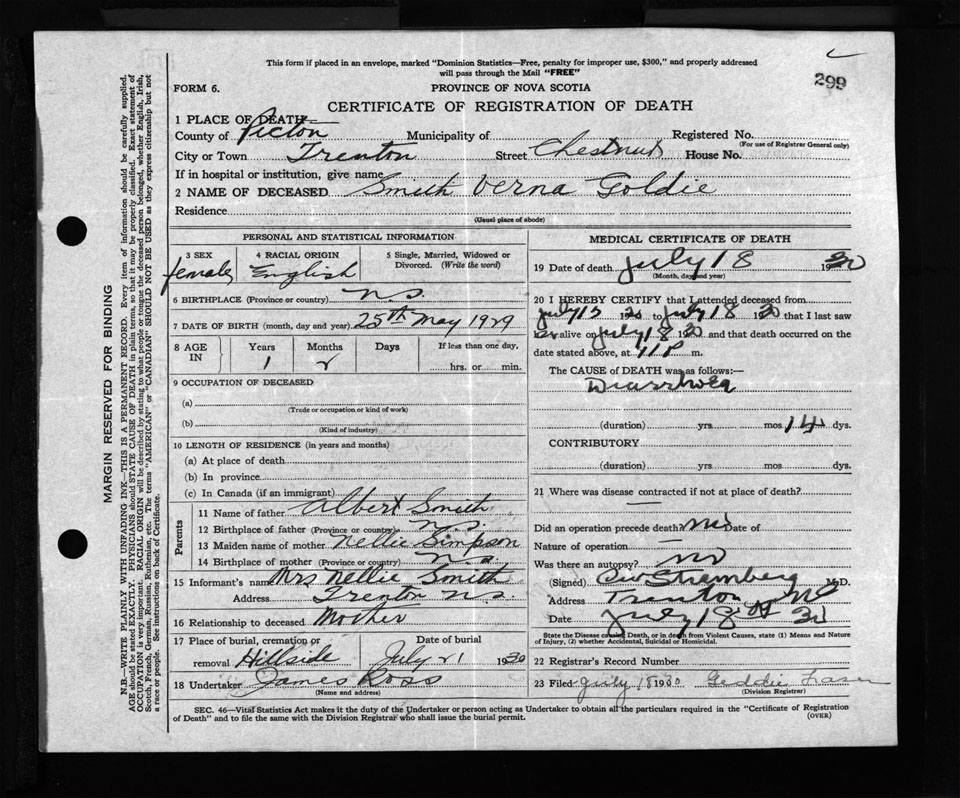 This form if placed in an envelope, marked "Dominion Statistics—Free, penalty for improper use, $300," and properly addressed
will pass through the Mail "FREE"
299
FORM 6.
PROVINCE OF NOVA SCOTIA
CERTIFICATE OF REGISTRATION OF DEATH
1 PLACE OF DEATH
County of Pictou Municipality of Registered No.
(For use of Registrar General only)
City or Town Trenton Street Chestnut House No.
If in hospital or institution, give name
2 NAME OF DECEASED Smith Verna Goldie
Residence
(Usual place of abode)
PERSONAL AND STATISTICAL INFORMATION
3 SEX 4 RACIAL ORIGIN 5 Single, Married, Widowed or
Divorced. (Write the word)
female English
6 BIRTHPLACE (Province or country) N.S.
7 DATE OF BIRTH (month, day and year) 25th May 1929
8 AGE IN Years Months Days If less than one day,
1 2 hrs. or min.
9 OCCUPATION OF DECEASED
(a)
(Trade or occupation or kind of work)
(b)
(Kind of industry)
10 LENGTH OF RESIDENCE (in years and months)
(a) At place of death
(b) In province
(c) In Canada (if an immigrant)
Parents
11 Name of father Albert Smith
12 Birthplace of father (Province or country) N.S.
13 Maiden name of mother Nellie Simpson
14 Birthplace of mother (Province or country) N.S.
15 Informant's name Mrs Nellie Smith
Address Trenton N.S.
16 Relationship to deceased Mother
17 Place of burial, cremation or Date of burial
removal Hillside July 21 1930
18 Undertaker James Ross
(Name and address)
MEDICAL CERTIFICATE OF DEATH
19 Date of death July 18 1930
(Month, day and year)
20 I HEREBY CERTIFY that I attended deceased from
July 30 to July 18 1930 that I last saw
her alive on July 18 1930 and that death occurred on the
date stated above, at 11 P m.
The CAUSE of DEATH was as follows:
Diarrhoea
(duration) yrs. mos. 14 dys.
CONTRIBUTORY
(duration) yrs. mos. dys.
21 Where was disease contracted if not at place of death?
Did an operation precede death? no Date of
Nature of operation
Was there an autopsy? no
(Signed) Stremberg M.D.
Address Trenton NS
Date July 18th 30
State the Disease causing Death, or in death from Violent Causes, state (1) Means and Nature
of Injury, (2) whether Accidental, Suicidal or Homicidal.
22 Registrar's Record Number
23 Filed July 18 1930 Geddie Fraser
(Division Registrar)
SEC. 46—Vital Statistics Act makes it the duty of the Undertaker or person acting as Undertaker to obtain all the particulars required in the "Certificate of Registration
of Death" and to file the same with the Division Registrar who shall issue the burial permit.
(OVER)
MARGIN RESERVED FOR BINDING
N.B.—WRITE PLAINLY WITH UNFADING INK—THIS IS A PERMANENT RECORD. Every item of information should be carefully supplied.
AGE should be stated EXACTLY. PHYSICIANS should STATE CAUSE OF DEATH in plain terms, so that it may be properly classified. Exact statement of
OCCUPATION is very important. RACIAL ORIGIN will be described by stating to what people or tongue the deceased person belonged, whether English, Irish,
Scotch, French, German, Russian, Ruthenian, etc. The terms "AMERICAN" or "CANADIAN" SHOULD NOT BE USED as they express citizenship but not
a race or people. See instructions on back of Certificate.